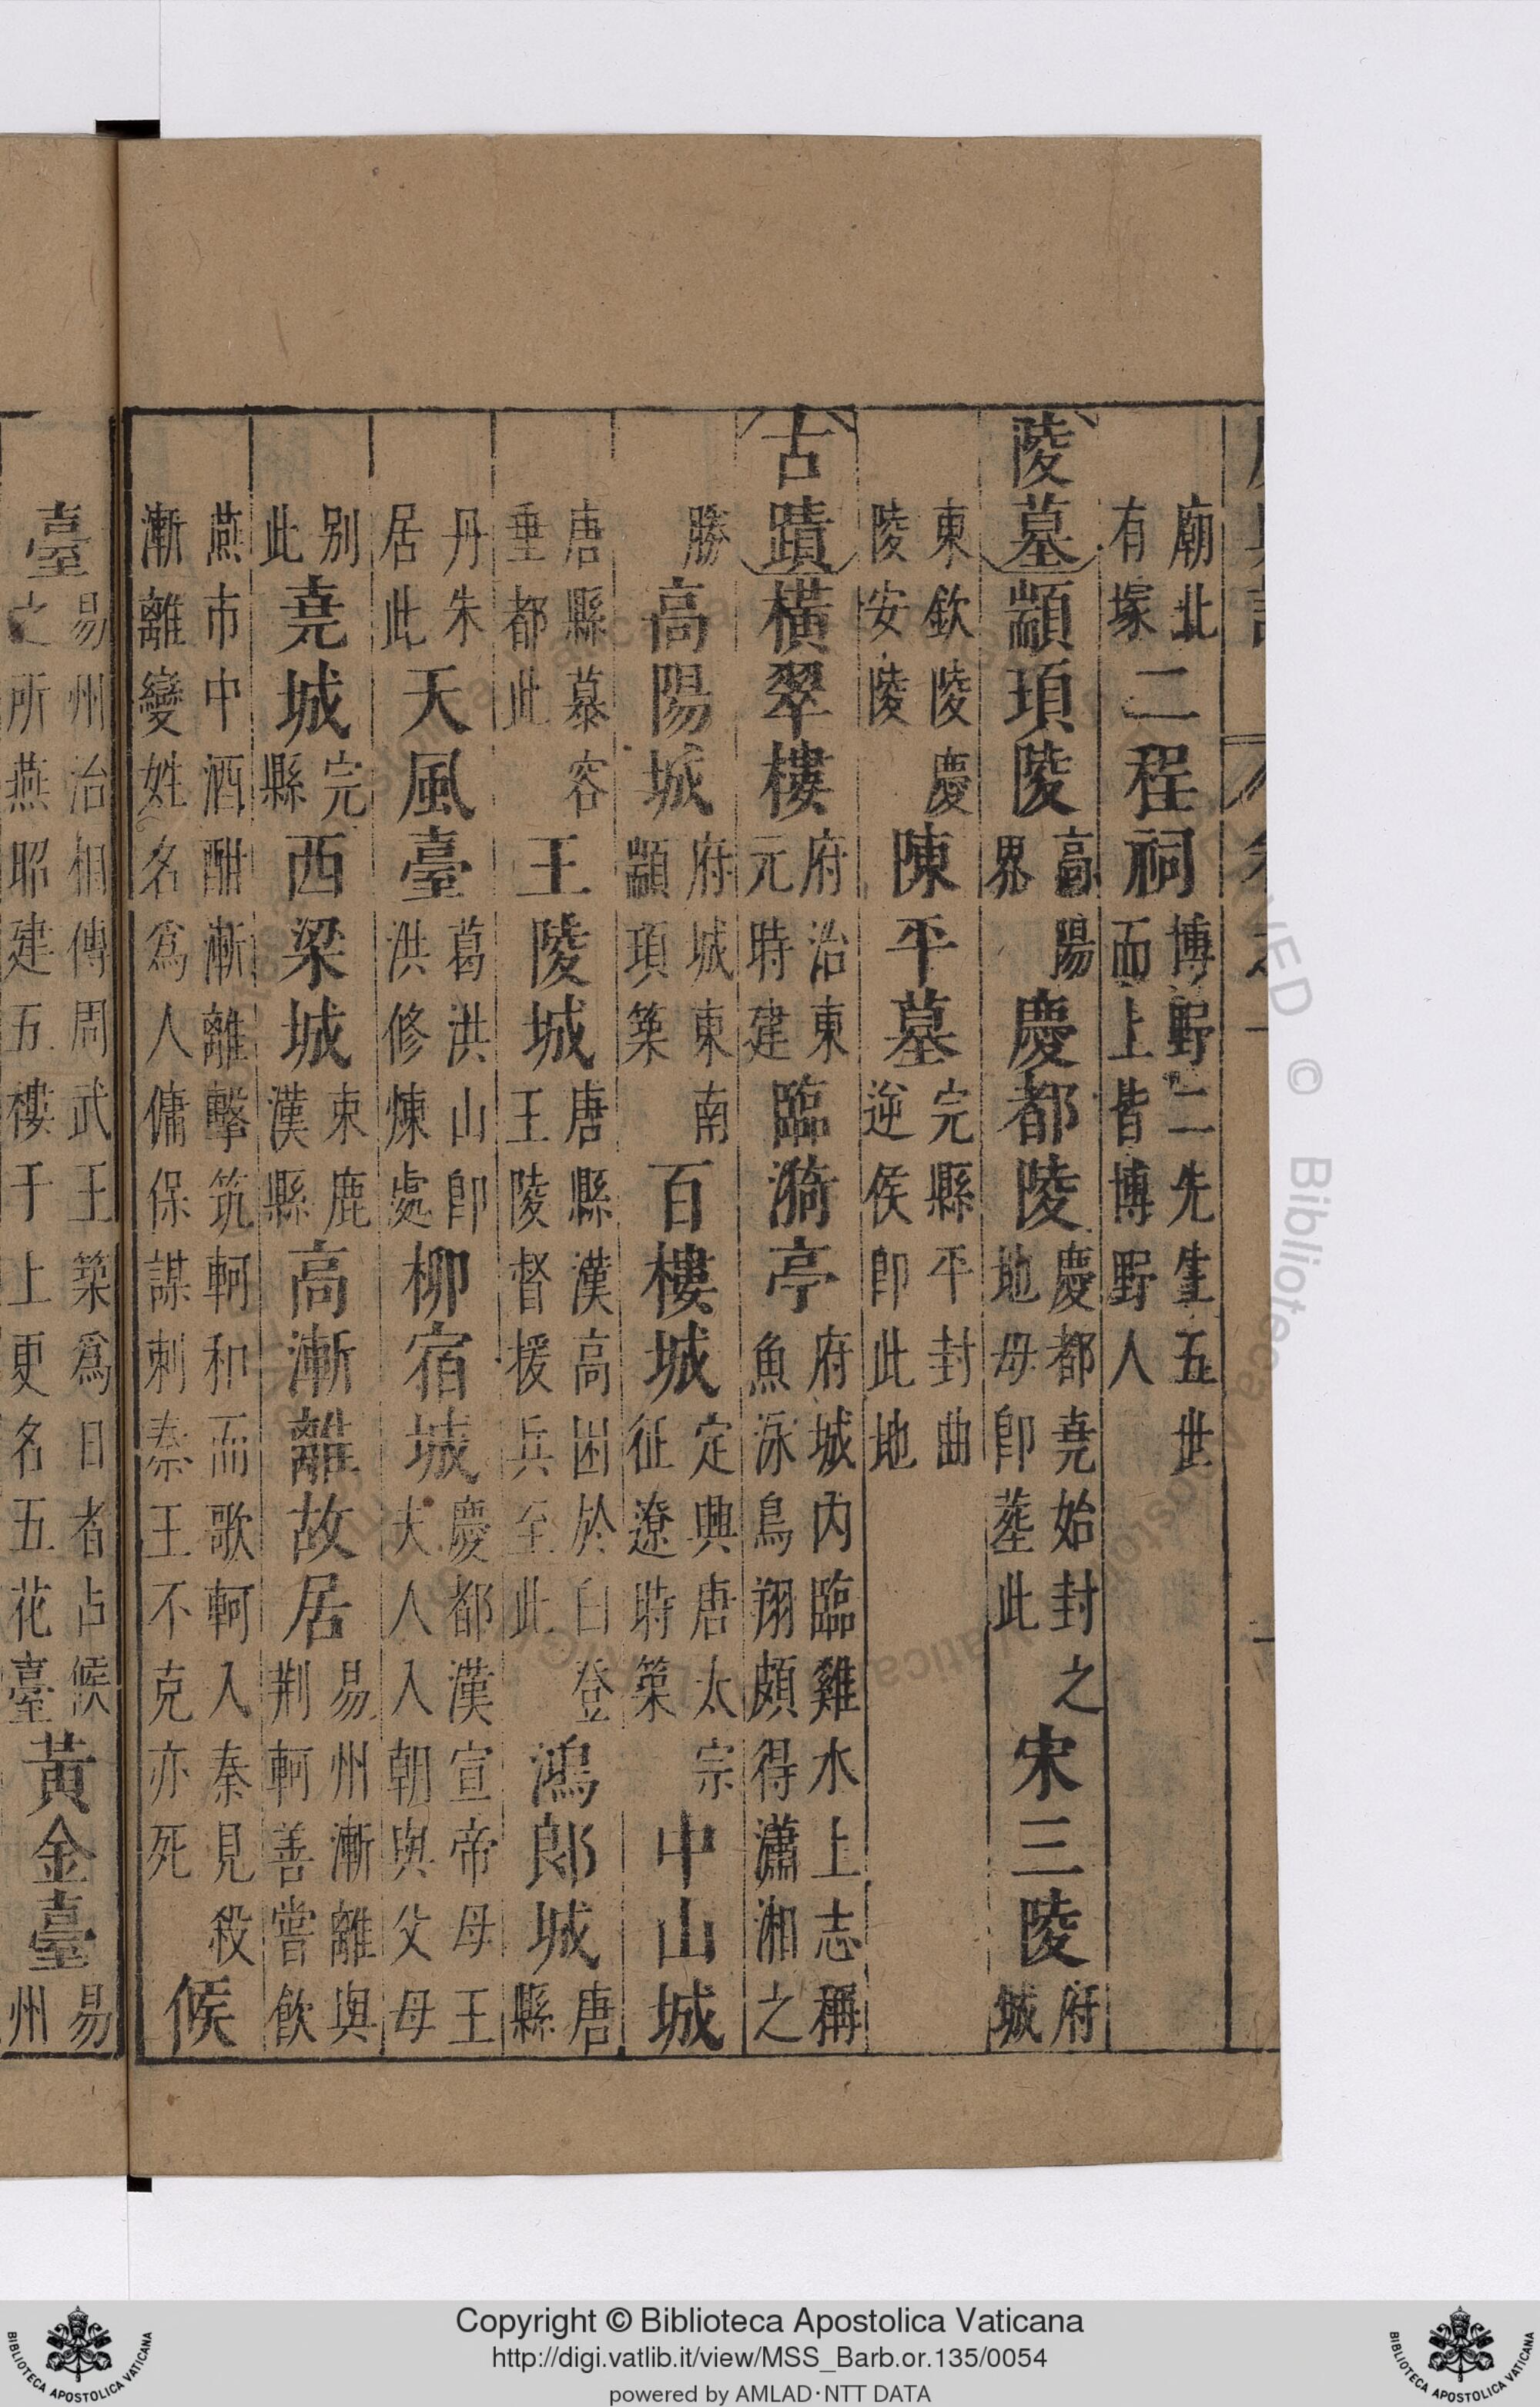 廟北有塚二程祠博野二先生五世而上皆博野人
陵墓顓頊陵高陽界慶都陵慶都堯始封之地母卽葬此宋三陵府城
東欽陵慶陵安陵陳平墓完縣平封曲逆侯卽此地
古蹟橫翠樓府治東元時建臨漪亭府城內臨雞水上志稱魚泳鳥翔頗得瀟湘之
勝高陽城府城東南顓頊築百樓城定興唐太宗征遼時築中山城
唐縣慕容垂都此王陵城唐縣漢高困於白登王陵督援兵至此鴻郎城唐縣
丹朱居此天風臺葛洪山卽洪修煉處柳宿城慶都漢宣帝母王夫人入朝與父母
別此堯城完縣西梁城束鹿漢縣高漸離故居易州漸離與荆軻善嘗飲
燕市中酒酣漸離擊筑軻和而歌軻入秦見殺漸離變姓名爲人傭保謀刺秦王不克亦死候
臺易州治相傳周武王築爲日者占候之所燕昭建五樓于上更名五花臺黃金臺易州
Copyright © Biblioteca Apostolica Vaticana
http://digi.vatlib.it/view/MSS_Barb.or.135/0054
powered by AMLAD·NTT DATA
BIBLIOTECA APOSTOLICA VATICANA
BIBLIOTECA APOSTOLICA VATICANA